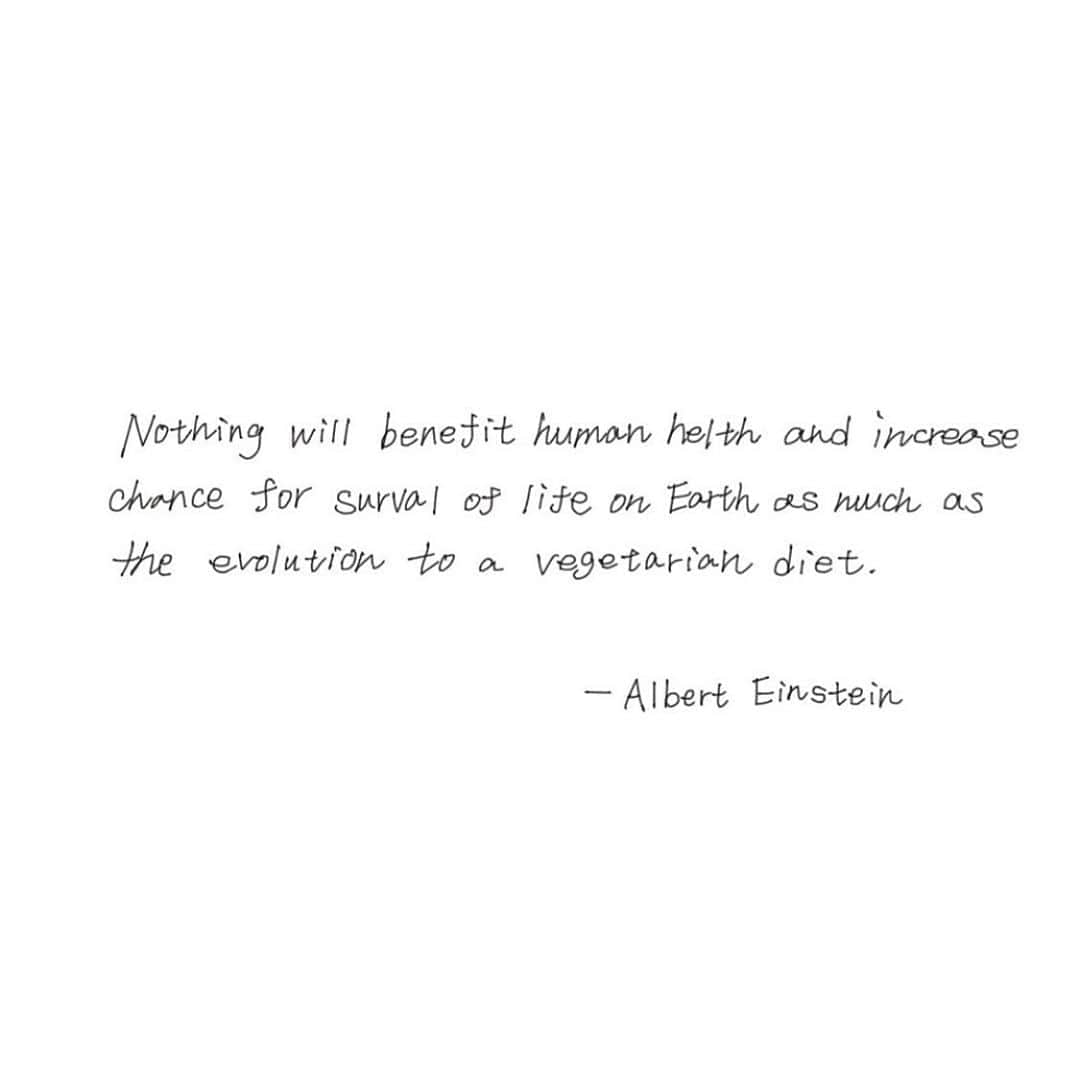 Nothing will benefit human helth and increase
chance for surval of life on Earth as much as
the evolution to a vegetarian diet.
— Albert Einstein